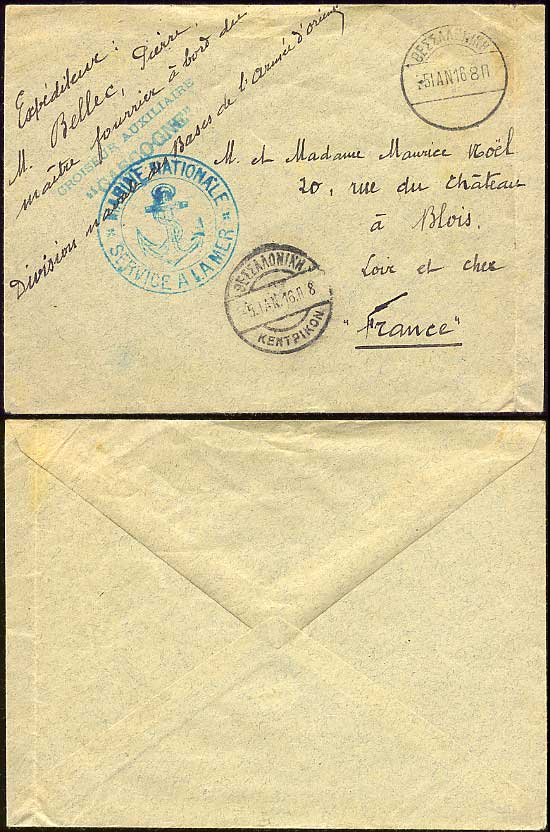 Expéditeur :
M. Bellec, Pierre,
maître fourrier à bord du
CROISEUR AUXILIAIRE
"GASCOGNE"
Division navale des Bases de l'Armée d'orient
MARINE NATIONALE
SERVICE A LA MER
ΘΕΣΣΑΛΟΝΙΚΗ
5 ΙΑΝ 16 8 Π
M. et Madame Maurice Noël
20, rue du Château
à Blois.
Loir et cher
"France"
ΘΕΣΣΑΛΟΝΙΚΗ
5. ΙΑΝ. 16. Π 8
ΚΕΝΤΡΙΚΟΝ